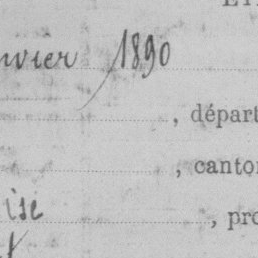 nvier 1890
, départ
, canto
ise
, pro